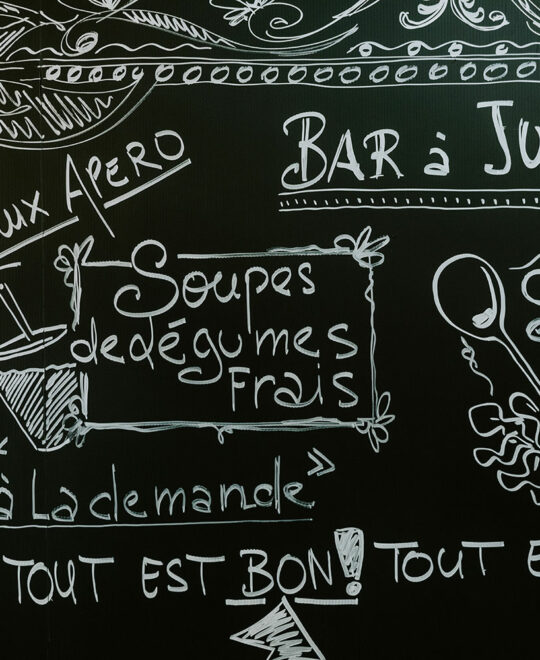 UX APERO
BAR à JU
Soupes
de légumes
Frais
"à La demande"
TOUT EST BON! TOUT E